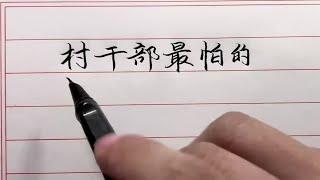 村干部最怕的